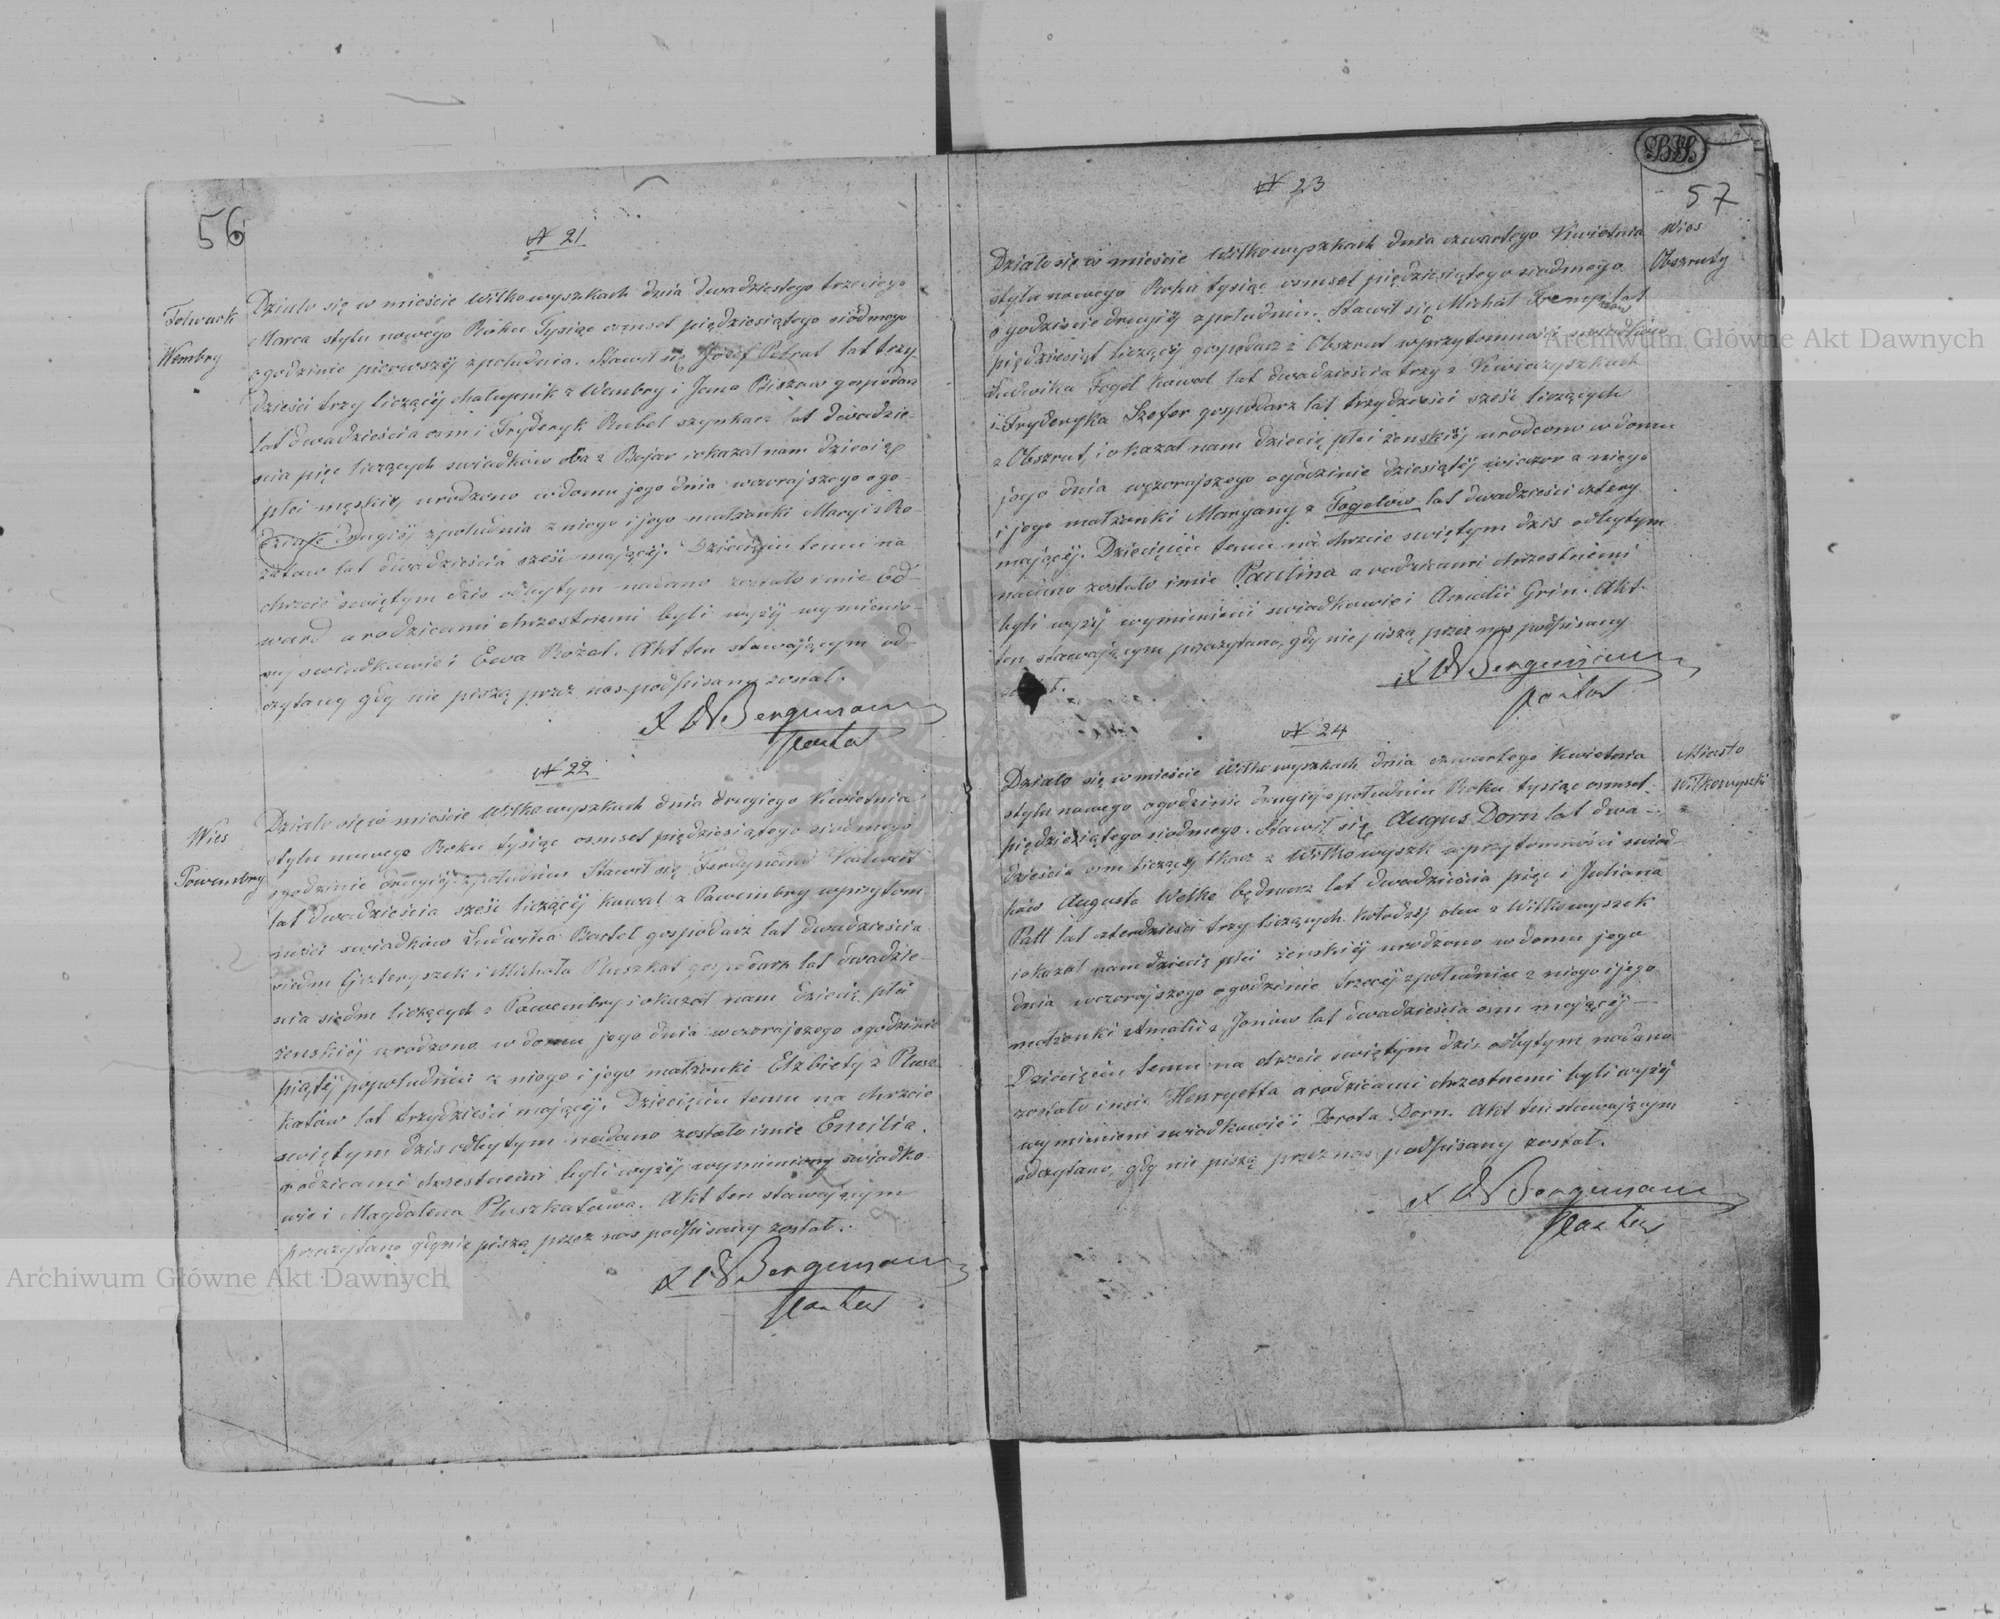 56
№ 21
Folwark
Wembry
Działo się w mieście Wiłkowyszkach dnia dwudziestego trzeciego
Marca stylu nowego Roku Tysiąc osmset pięćdziesiątego siódmego
o godzinie pierwszej z południa. Stawił się Józef Petrat lat trzy
dzieści trzy liczący chałupnik z Wembry i Jana gospodarz
lat dwadzieścia osm i Fryderyk Rubel szynkarz lat dwadzie-
scia pięc liczących swiadków oba z Bojar i okazał nam dziecię
płci męskiej urodzone w domu jego dnia wczorajszego o go-
dzinie drugiej z południa z niego i jego małżonki Maryi z Ro-
zatow lat dwadzieścia sześć mającej. Dziecięciu temu na
chrzcie swiętym dzis odbytym nadano zostało imie Ed-
ward a rodzicami chrzestnemi byli wyżej wymienio-
ny swiadkowie i Ewa Rozat. Akt ten stawającym od-
czytany gdy nie piszą przez nas podpisany został.
Bergmann
Pastor
№ 22
Wies
Powembry
Działo się w mieście Wiłkowyszkach dnia drugiego Kwietnia
stylu nowego Roku tysiąc osmset pięćdziesiątego siodmego
o godzinie drugiej z południa Stawił się Ferdynand
lat dwadzieścia sześć liczący kowal z Pawembry w przytom-
ności swiadków Ludwika Bartel gospodarz lat dwadzieścia
siedm i Michała Pluszkat gospodarz lat dwadzie-
scia siedm liczących z Pawembry i okazał nam dziecię płci
żenskiej urodzone w domu jego dnia wczorajszego o godzinie
piątej popołudniu z niego i jego małżonki Elżbiety z Plusz
katów lat trzydzieści mającej. Dziecięciu temu na chrzcie
swiętym dzis odbytym nadano zostało imie Emilia.
rodzicami chrzestnemi byli wyżej wymieniony swiadko
wie i Magdalena Pluszkatowa. Akt ten stawającym
przeczytano gdy nie piszą przez nas podpisany został.
Bergmann
Pastor
57
№ 23
Wies
Obszruty
Działo się w mieście Wiłkowyszkach dnia czwartego Kwietnia
stylu nowego Roku tysiąc osmset pięćdziesiątego siodmego
o godzinie drugiej z południa. Stawił się Michał lat
pięćdziesiąt liczący gospodarz z Obszrut w przytomności swiadków
Ludwika Fogel kowal lat dwadzieścia trzy z
i Fryderyka Szefer gospodarz lat trzydzieści sześć liczących
z Obszrut, i okazał nam dziecię płci żenskiej urodzone w domu
jego dnia wczorajszego o godzinie dziesiątej wieczor z niego
i jego małżonki Maryany z Fogelow lat dwadzieści cztery
mającej. Dziecięciu temu na chrzcie swiętym dzis odbytym
nadano zostało imie Paulina a rodzicami chrzestnemi
byli wyżej wymienieni swiadkowie i Amalii Grin. Akt
ten stawającym przeczytano, gdy nie piszą przez nas podpisany
Bergmann
Pastor
№ 24
Miasto
Wiłkowyszki
Działo się w mieście Wiłkowyszkach dnia czwartego Kwietnia
stylu nowego o godzinie drugiej z południu Roku tysiąc osmset
pięćdziesiątego siodmego. Stawił się Augus Dorn lat dwa-
dzieścia osm liczący tkacz z Wiłkowyszk w przytomności swiad
ków Augusta Welke bednarz lat dwadzieścia pięc i Juliana
Patt lat czterdzieści trzy liczących kołodzej oba z Wiłkowyszek
i okazał nam dziecię płci żenskiej urodzone w domu jego
dnia wczorajszego o godzinie trzeciej z południu z niego i jego
małżonki Amalii z Jonów lat dwadzieścia osm mającej —
Dziecięciu temu na chrzcie swiętym dzis odbytym nadano
zostało imie Henryetta a rodzicami chrzestnemi byli wyżej
wymienieni swiadkowie i Dorota Dorn. Akt ten stawającym
odczytano, gdy nie piszą przez nas podpisany został.
Bergmann
Pastor
Archiwum Główne Akt Dawnych
Archiwum Główne Akt Dawnych